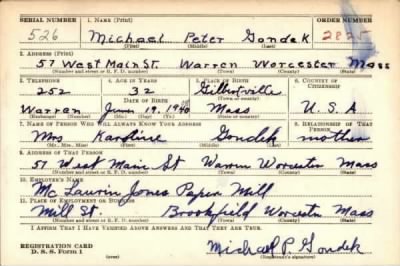 SERIAL NUMBER 1. NAME (Print) ORDER NUMBER
526 Michael Peter Gondek 2825
(First) (Middle) (Last)
2. ADDRESS (Print)
57 West Main St. Warren Worcester Mass
(Number and street or R. F. D. number) (Town) (County) (State)
3. TELEPHONE 4. AGE IN YEARS 5. PLACE OF BIRTH 6. COUNTRY OF CITIZENSHIP
252 32 Gilbertville
(Town or county)
DATE OF BIRTH
Warren June 19, 1940 Mass U. S. A
(Exchange) (Mo.) (Day) (Yr.) (State or country)
7. NAME OF PERSON WHO WILL ALWAYS KNOW YOUR ADDRESS 8. RELATIONSHIP OF THAT PERSON
Mrs Karoline Gondek mother
(Mr., Mrs., Miss) (First) (Middle) (Last)
9. ADDRESS OF THAT PERSON
57 West Main St Warren Worcester Mass
(Number and street or R. F. D. number) (Town) (County) (State)
10. EMPLOYER'S NAME
Mc Laurin Jones Paper Mill
11. PLACE OF EMPLOYMENT OR BUSINESS
Mill St. Brookfield Worcester Mass
(Number and street or R. F. D. number) (Town) (County) (State)
I AFFIRM THAT I HAVE VERIFIED ABOVE ANSWERS AND THAT THEY ARE TRUE.
REGISTRATION CARD
D. S. S. Form 1 Michael P. Gondek
(Registrant's signature)